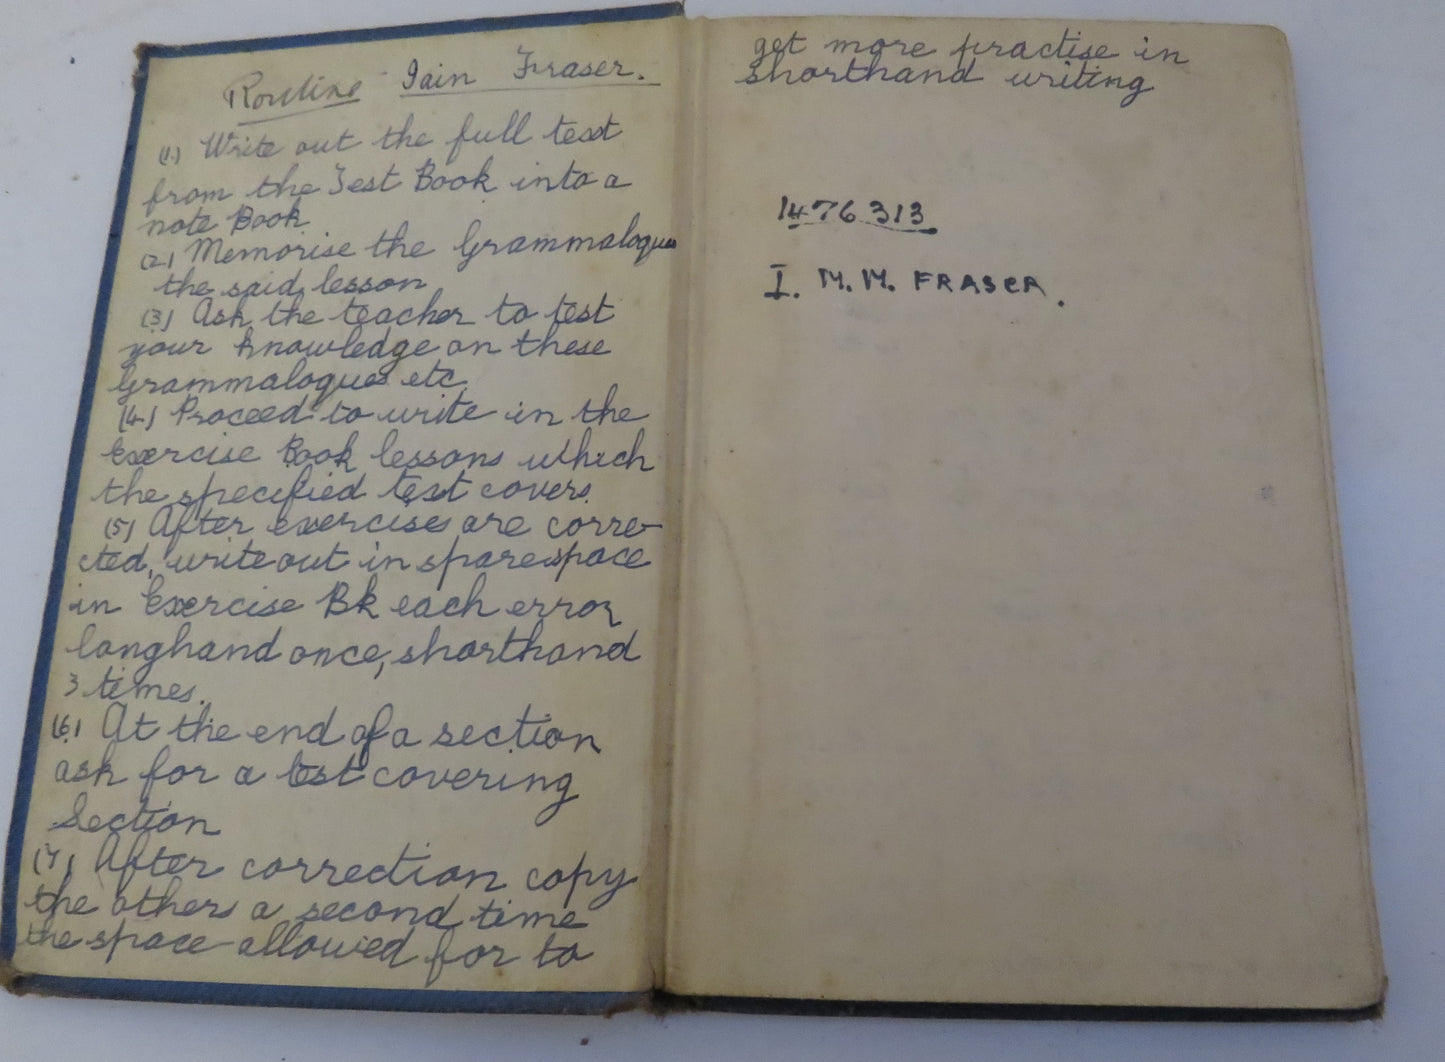 Routine Iain Fraser.
(1.) Write out the full text
from the Text Book into a
note Book
(2.) Memorise the Grammalogues
the said lesson
(3) Ask the teacher to test
your knowledge on these
Grammalogues etc.
(4.) Proceed to write in the
Exercise Book lessons which
the specified text covers.
(5) After exercises are corre-
cted, write out in spare space
in Exercise Bk each error
longhand once, shorthand
3 times.
(6.) At the end of a section
ask for a test covering
Section
(7) After correction copy
the others a second time
the space allowed for to
get more practise in
shorthand writing
1476313
I. M. M. FRASER.